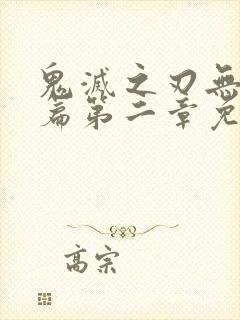 鬼滅之刃無
篇第二章免
高宗